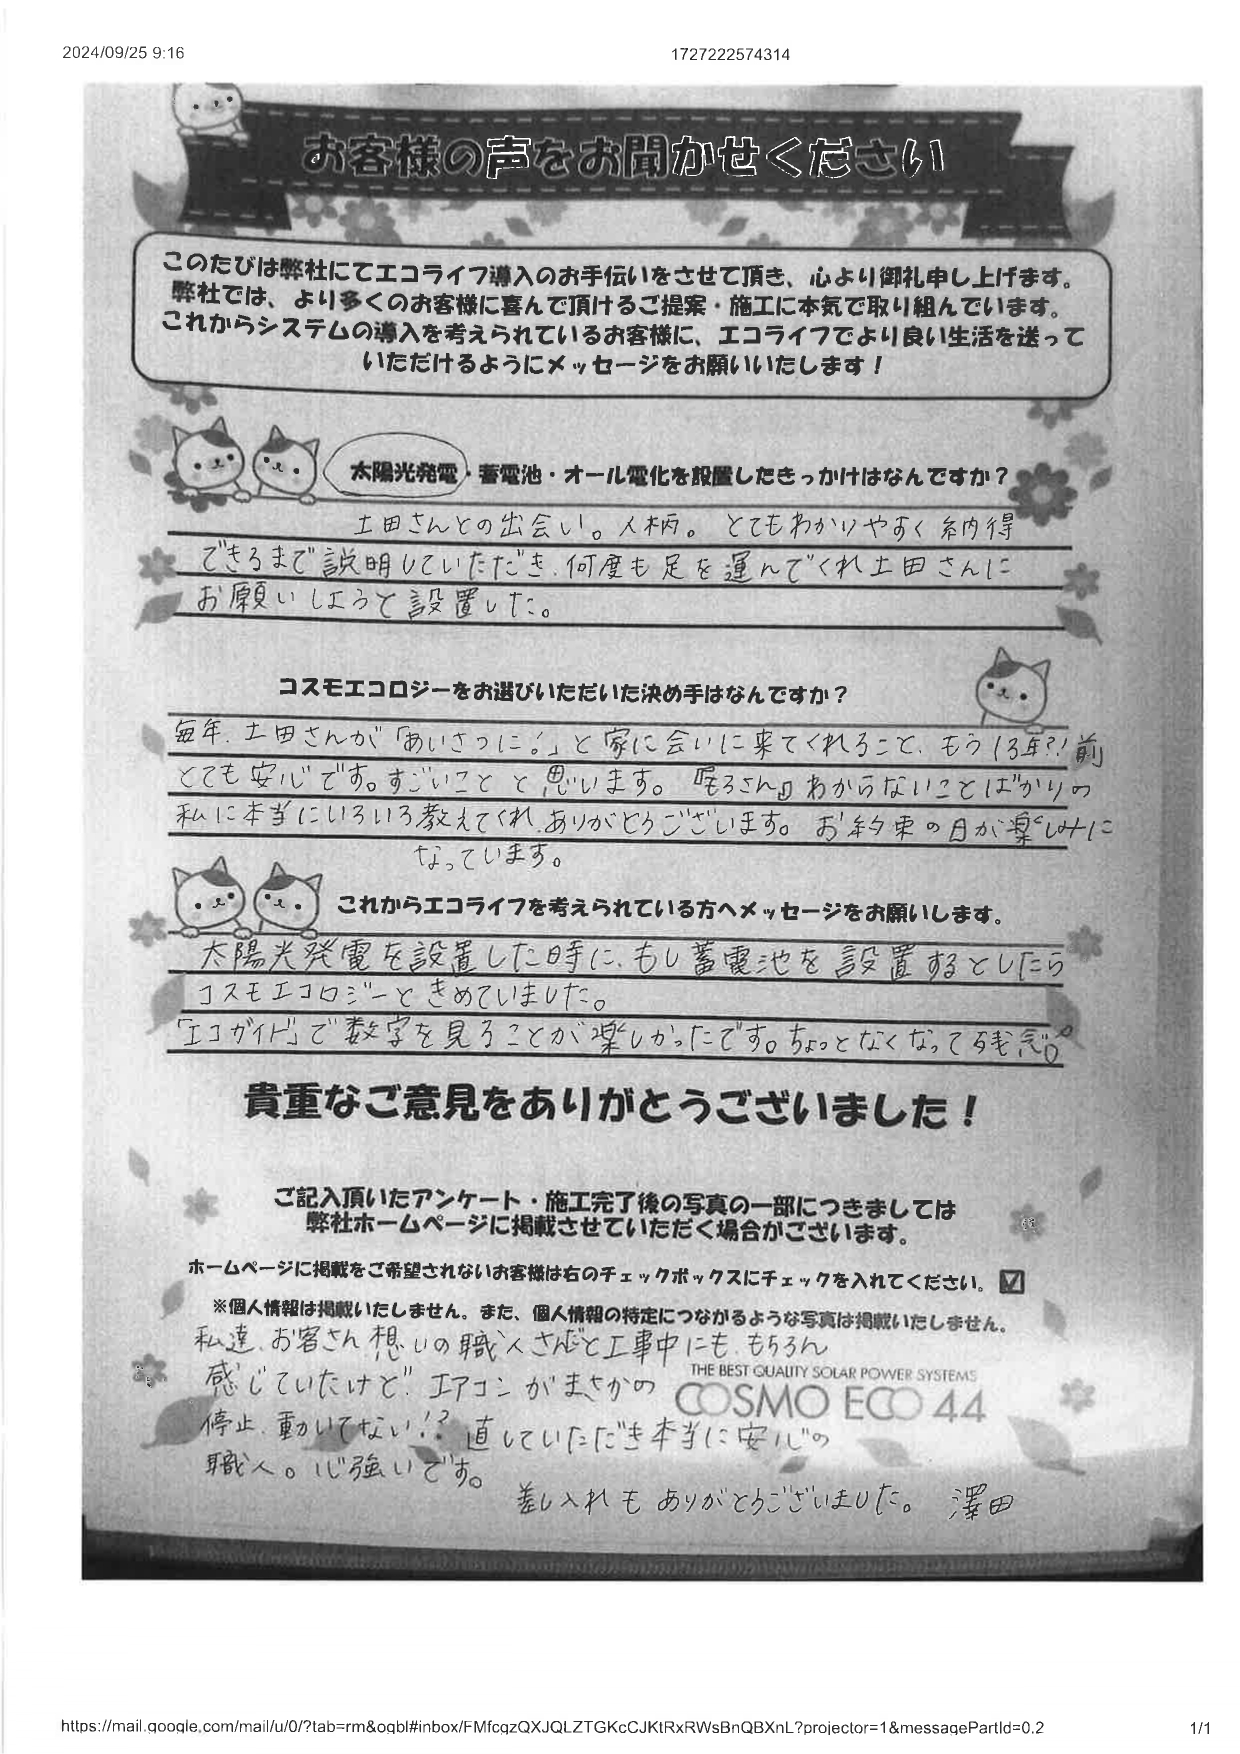 2024/09/25 9:16
1727222574314
お客様の声をお聞かせください
このたびは弊社にてエコライフ導入のお手伝いをさせて頂き、心より御礼申し上げます。
弊社では、より多くのお客様に喜んで頂けるご提案・施工に本気で取り組んでいます。
これからシステムの導入を考えられているお客様に、エコライフでより良い生活を送って
いただけるようにメッセージをお願いいたします！
太陽光発電・蓄電池・オール電化を設置したきっかけはなんですか？
土田さんとの出会い。人柄。とてもわかりやすく納得
できるまで説明していただき、何度も足を運んでくれ土田さんに
お願いしようと設置した。
コスモエコロジーをお選びいただいた決め手はなんですか？
毎年、土田さんが「あいさつに！」と家に会いに来てくれること、もう13年?!前
とても安心です。すごいことと思います。『もろさん』わからないことばかりの
私に本当にいろいろ教えてくれ、ありがとうございます。お約束の日が楽しみに
なっています。
これからエコライフを考えられている方へメッセージをお願いします。
太陽光発電を設置した時に、もし蓄電池を設置するとしたら
コスモエコロジーときめていました。
「エコガイド」で数字を見ることが楽しかったです。ちょっとなくなって残念。
貴重なご意見をありがとうございました！
ご記入頂いたアンケート・施工完了後の写真の一部につきましては
弊社ホームページに掲載させていただく場合がございます。
ホームページに掲載をご希望されないお客様は右のチェックボックスにチェックを入れてください。☑
※個人情報は掲載いたしません。また、個人情報の特定につながるような写真は掲載いたしません。
私達、お客さん想いの職人さんだと工事中にも、もちろん
感じていたけど、エアコンがまさかの
THE BEST QUALITY SOLAR POWER SYSTEMS
COSMO ECO 44
停止、動いてない!? 直していただき本当に安心の
職人。心強いです。
差し入れもありがとうございました。 澤田
https://mail.google.com/mail/u/0/?tab=rm&ogbl#inbox/FMfcgzQXJQLZTGKcCJKtRxRWsBnQBXnL?projector=1&messagePartId=0.2
1/1